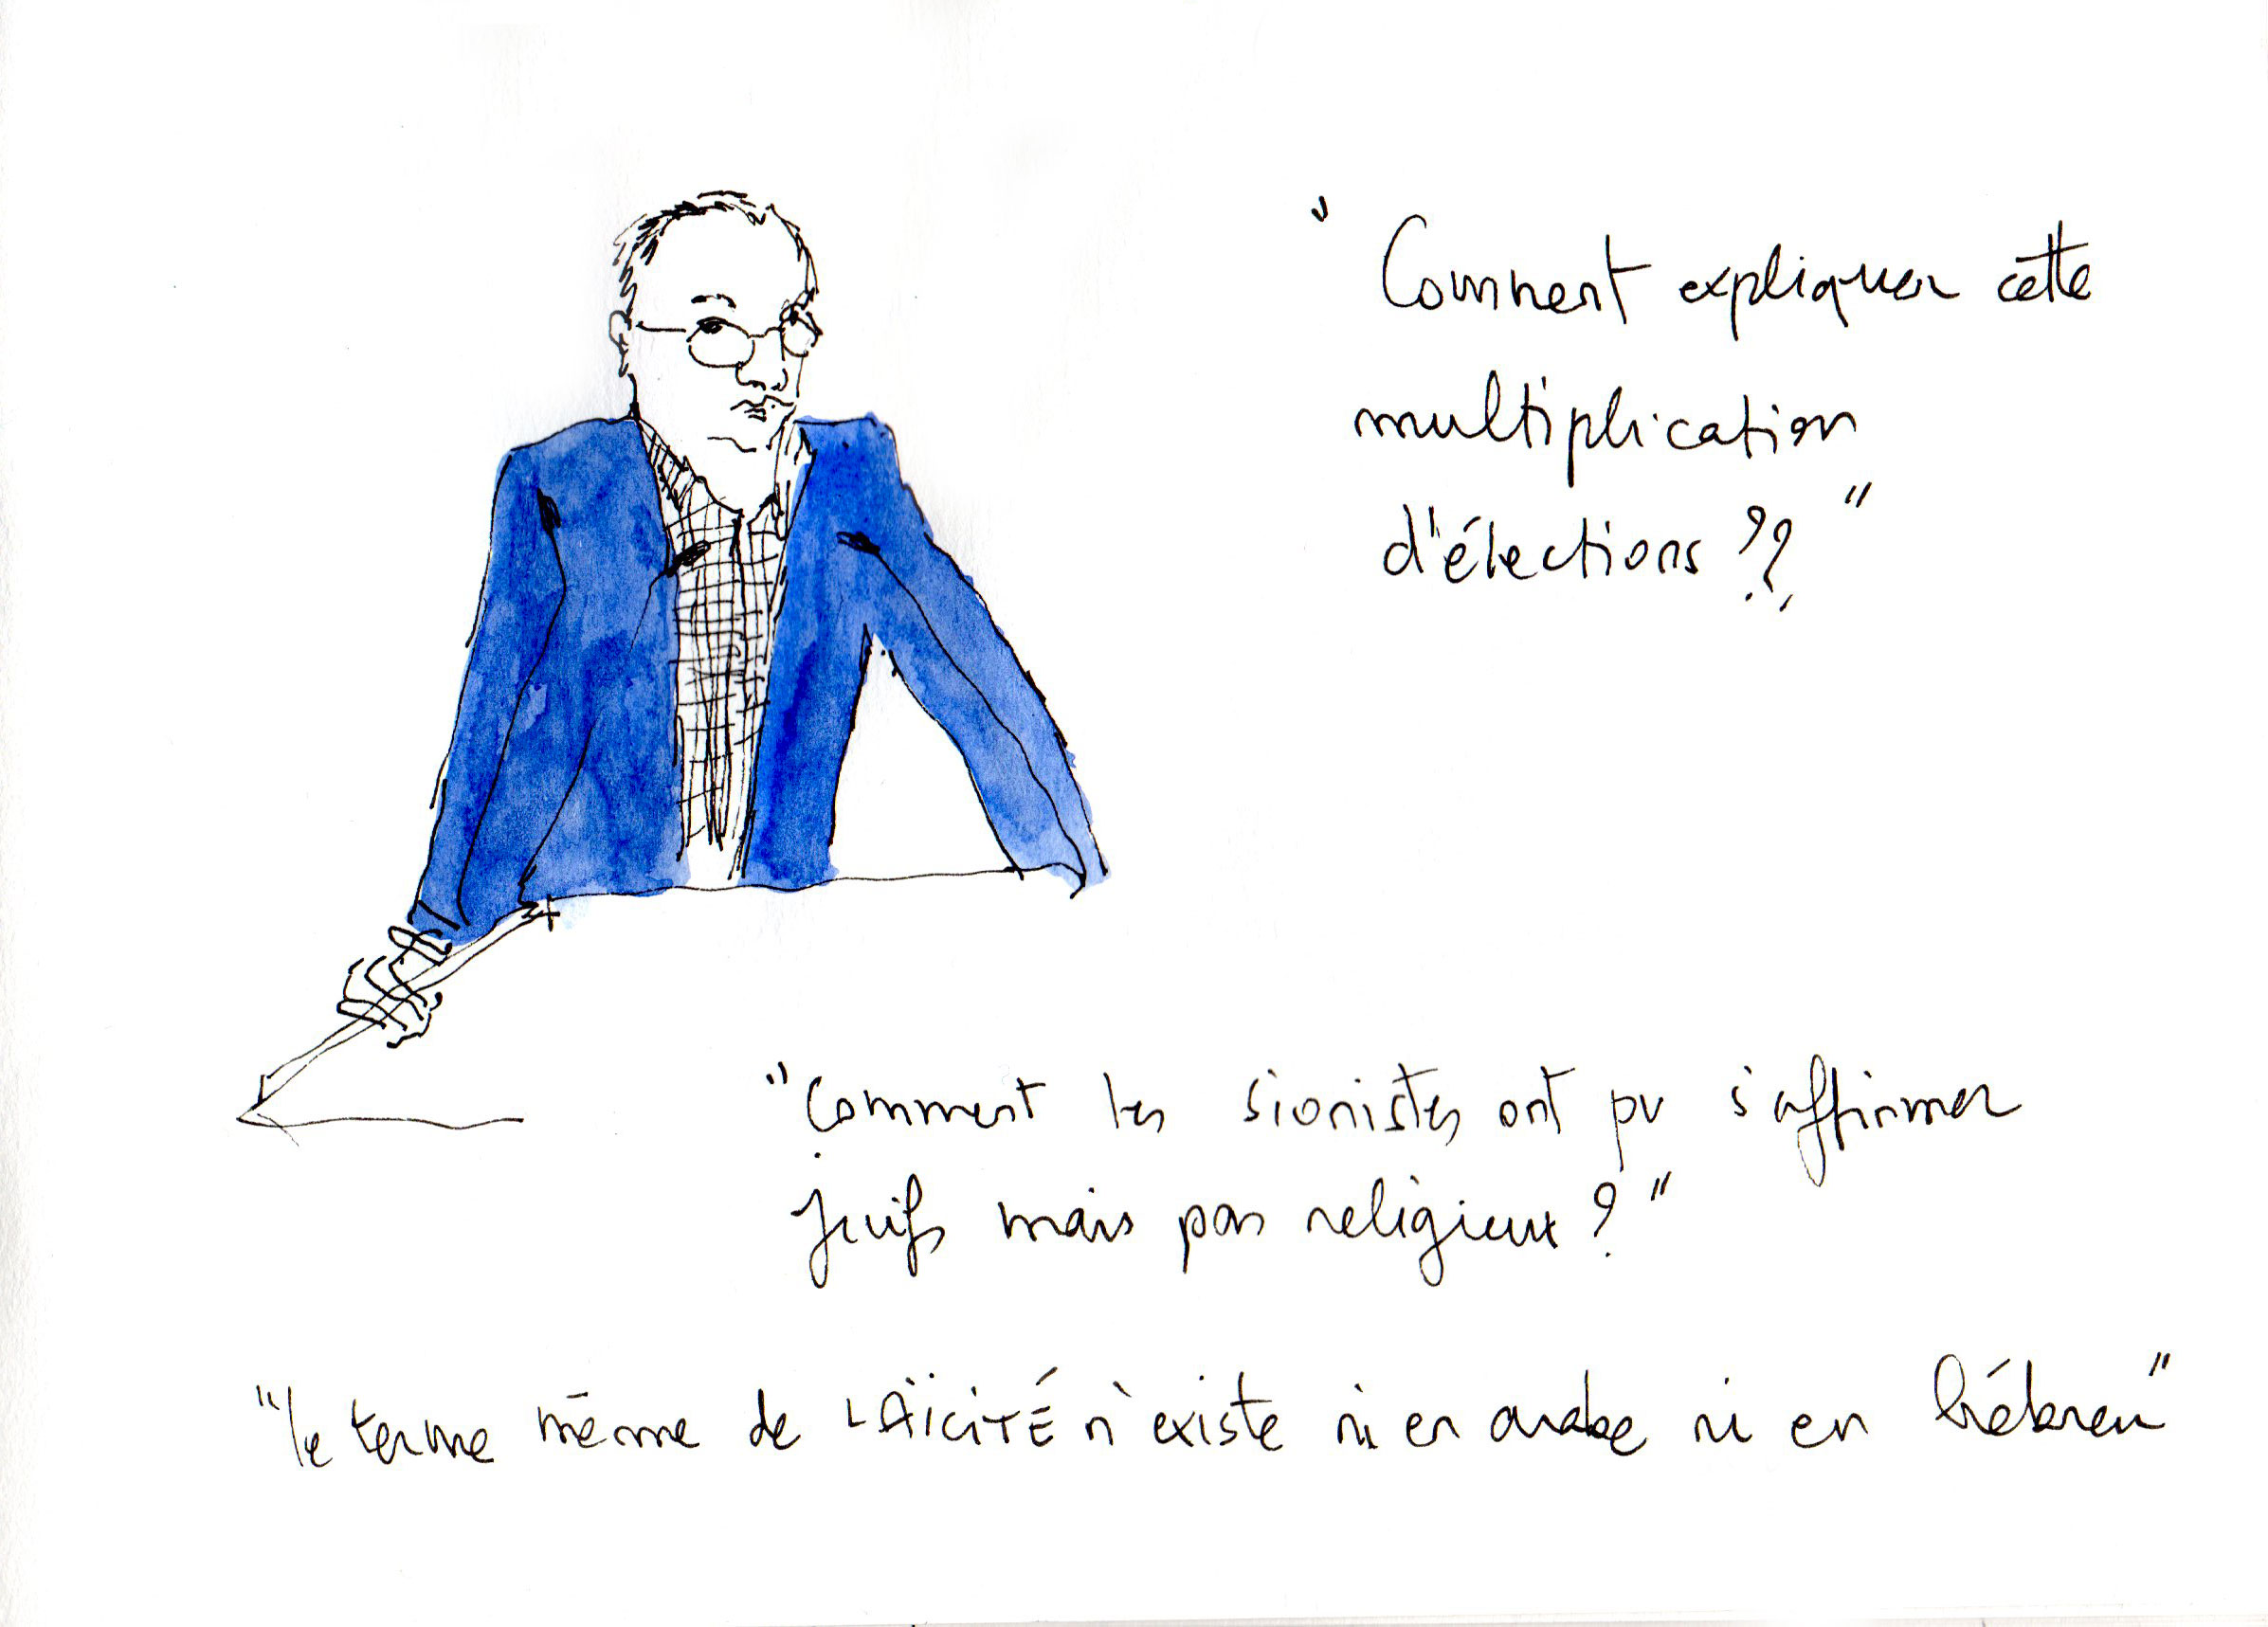 "Comment expliquer cette
multiplication
d'élections ??"
"Comment les sionistes ont pu s'affirmer
juifs mais pas religieux ?"
"le terme même de LAÏCITÉ n'existe ni en arabe ni en hébreu"